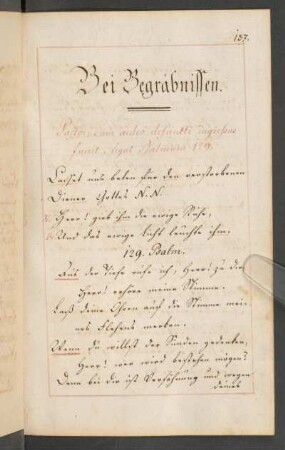 157.
Bei Begräbnissen.
Pastor cum aedes defuncti ingressus
fuerit, legat Psalmum 129.
Lasset uns beten für den verstorbenen
Diener Gottes N. N.
Herr! gieb ihm die ewige Ruhe,
Und das ewige Licht leuchte ihm.
129. Psalm.
Aus der Tiefe rufe ich, Herr! zu dir
Herr! erhöre meine Stimme.
Laß deine Ohren auf die Stimme mei-
nes Flehens merken.
Wenn du willst der Sünden gedenken,
Herr! wer wird bestehen mögen?
Denn bei dir ist Versöhnung und wegen
deines